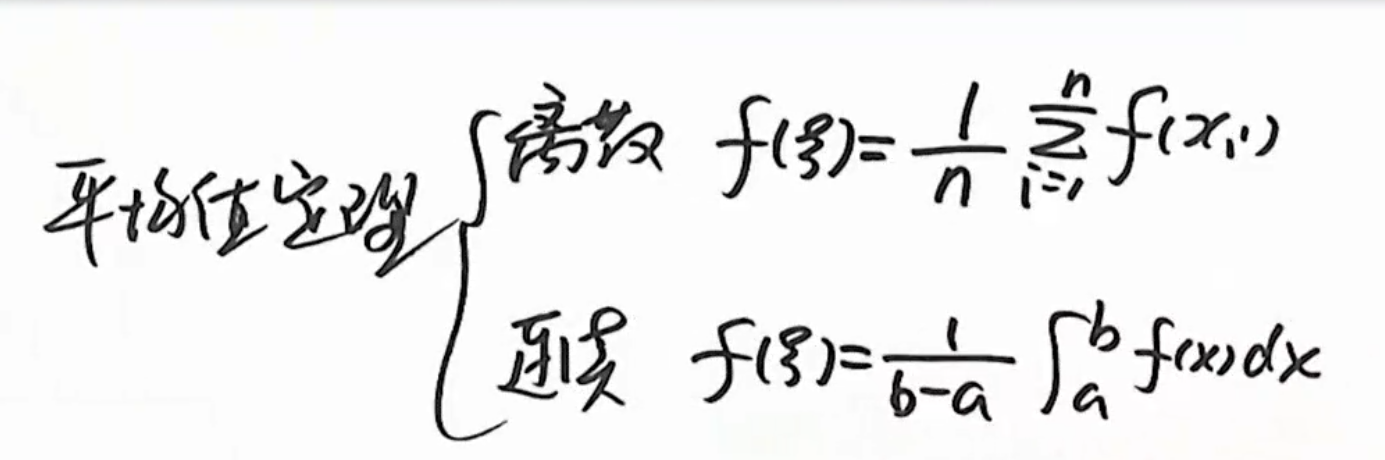 平均值定理
离散 f(ξ)=1/n ∑_{i=1}^{n} f(x_i)
连续 f(ξ)=1/(b-a) ∫_a^b f(x)dx